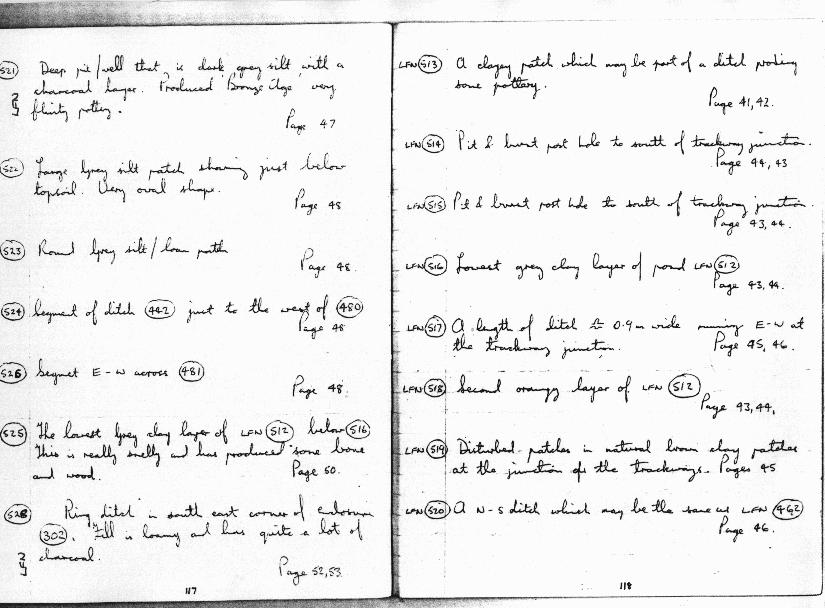 521 Deep pit/well that is dark grey silt with a
charcoal layer. Produced Bronze Age very
flinty pottery.
Page 47
522 Large Grey silt patch showing just below
topsoil. Very oval shape.
Page 48
523 Round Grey silt/loam patch
Page 48.
524 Segment of ditch 442 just to the west of 480
Page 48
526 Segmet E-W across 481
Page 48.
525 The lowest Grey clay layer of LFN 512 below 516
This is really smelly and has produced some bone
and wood.
Page 50.
528 Ring ditch in south east corner of enclosure
302. Fill is loamy and has quite a lot of
charcoal.
Page 52,53.
117
LFN 513 A clayey patch which may be part of a ditch
some pottery.
Page 41,42.
LFN 514 Pit & burnt post hole to south of trackway junction.
Page 44,43
LFN 515 Pit & burnt post hole to south of trackway junction.
Page 43,44.
LFN 516 Lowest grey clay layer of pond LFN 512
Page 43,44.
LFN 517 A length of ditch ≈ 0.9m wide running E-W at
the trackway junction.
Page 45, 46.
LFN 518 Second orangy layer of LFN 512
Page 43,44,
LFN 519 Disturbed patches in natural brown clay patches
at the junction of the trackways. Pages 45
LFN 520 A N-S ditch which may be the same as LFN 462
Page 46.
118